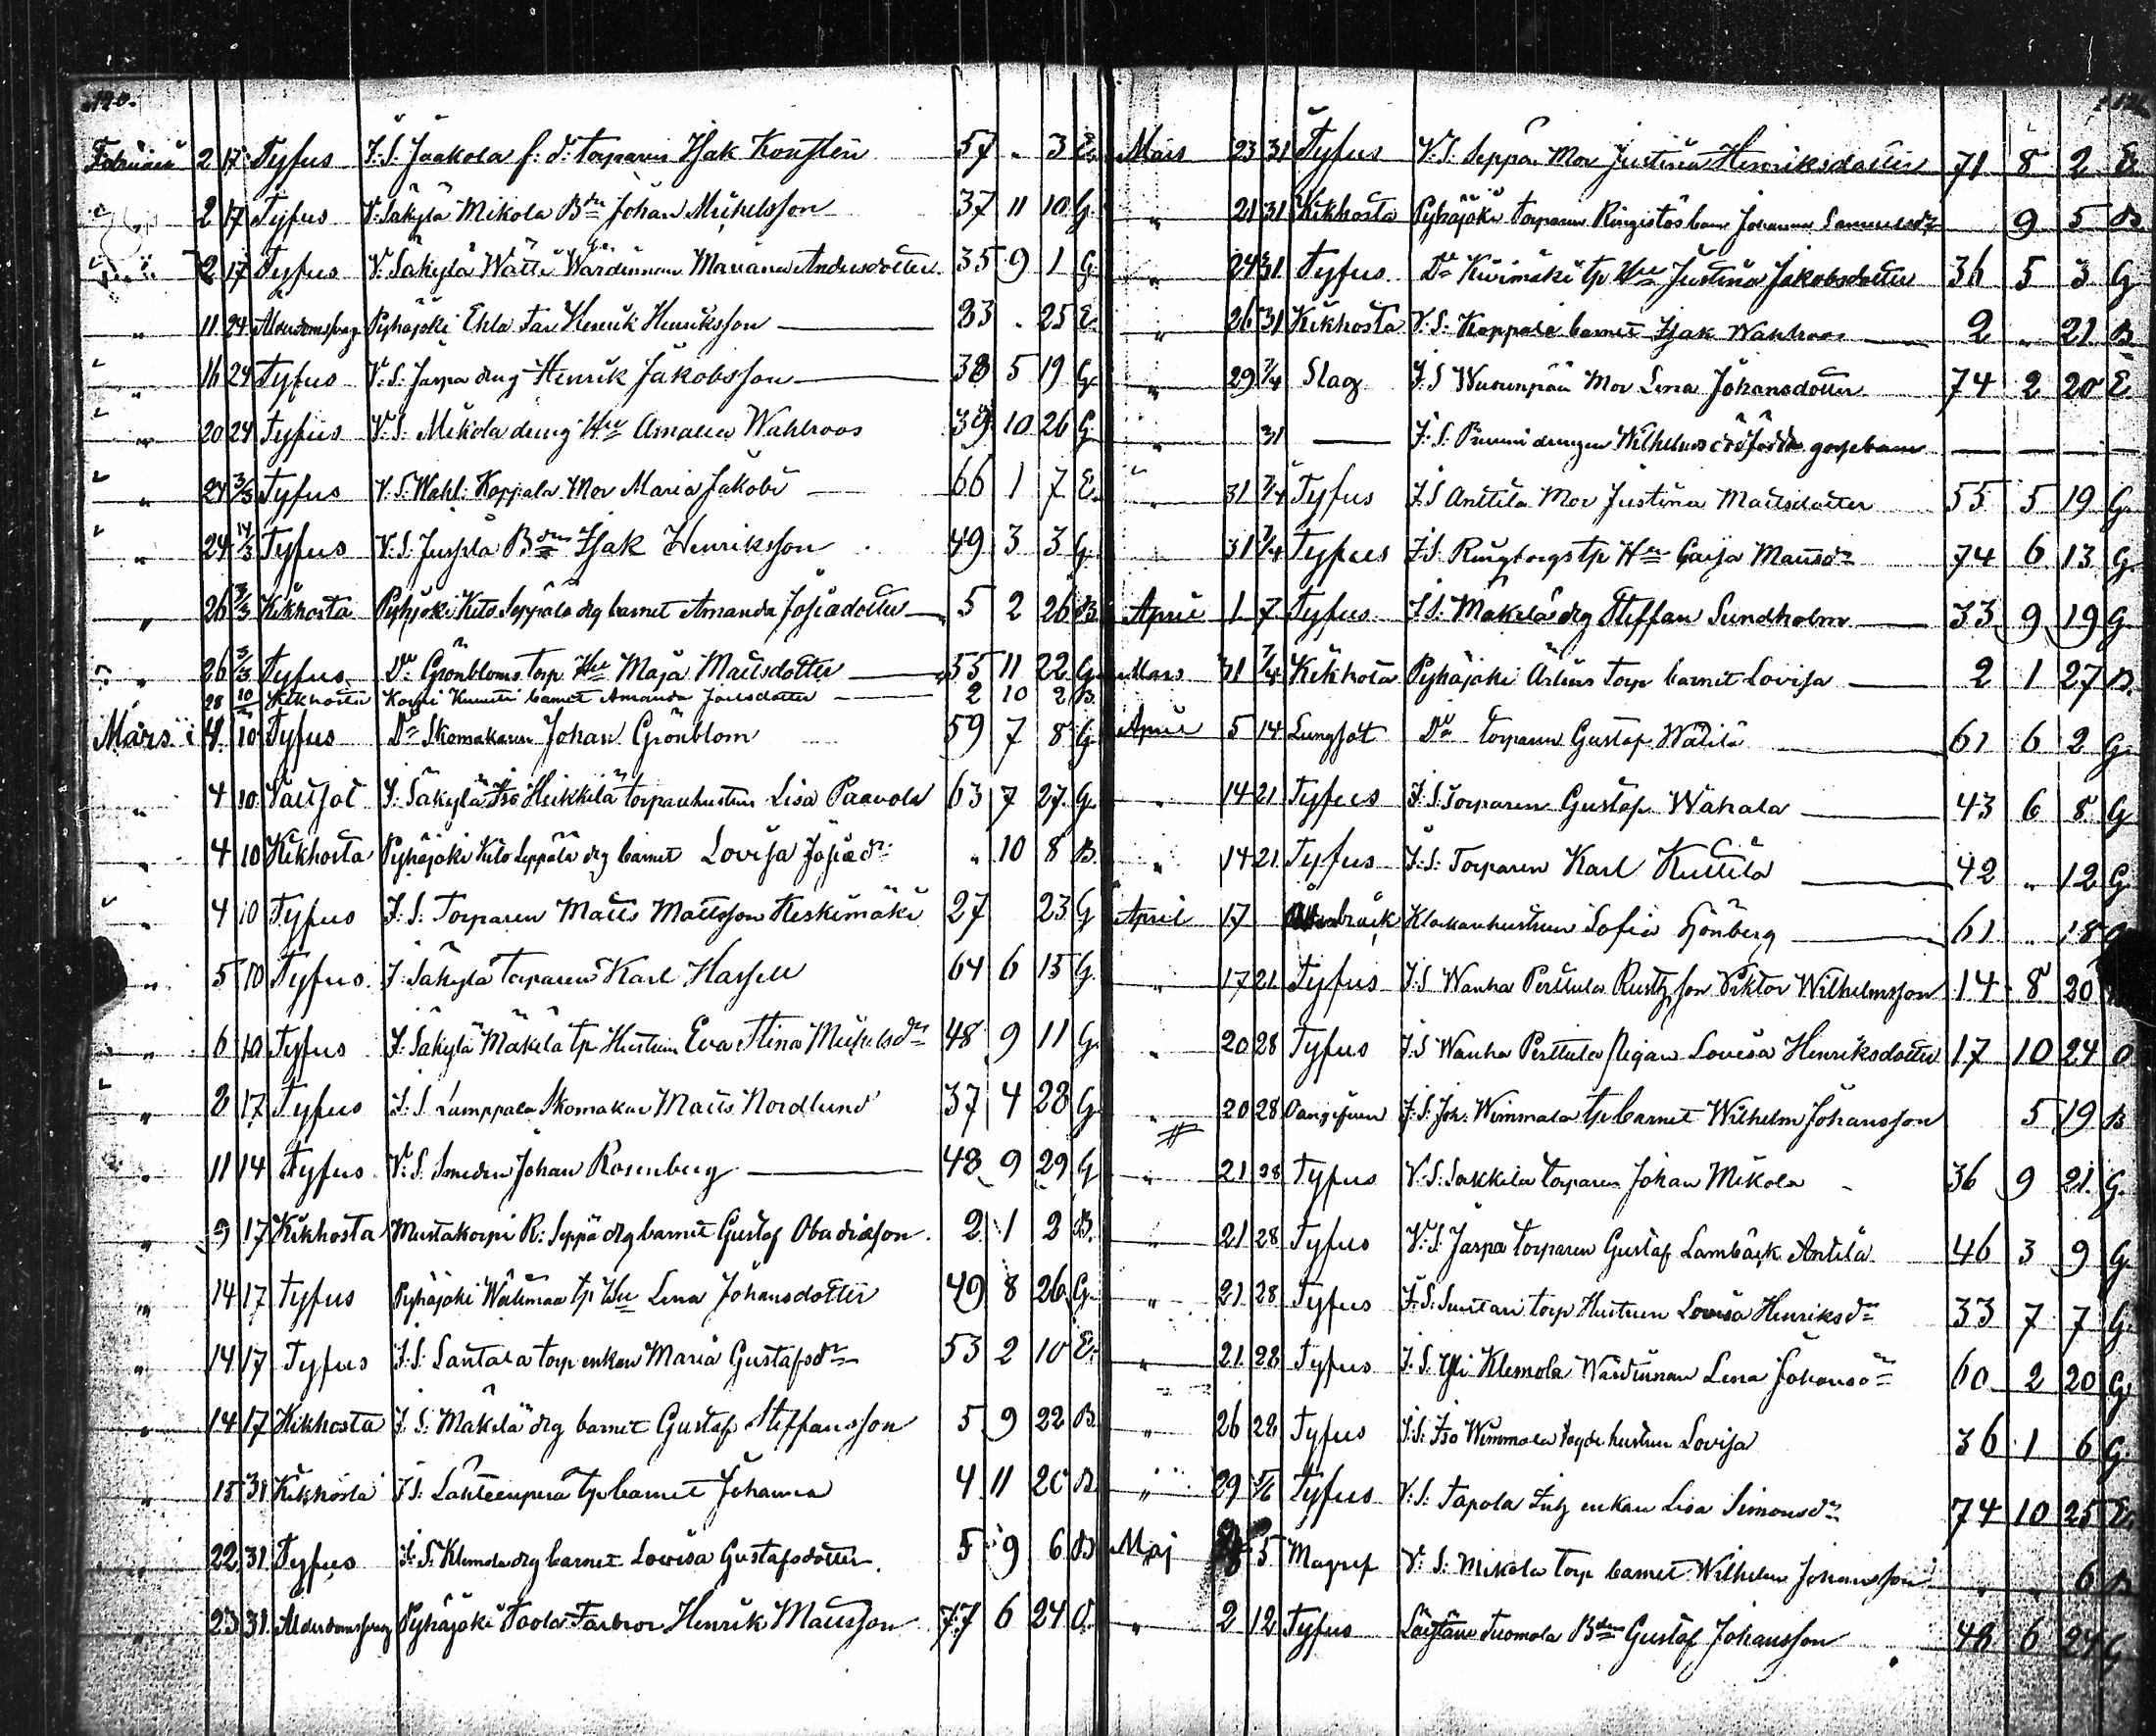 190.
Februari 2 17 Tyfus I.S. Jaakola f: d: torparen Isak Konstlin 57 " 3 E.
" 2 17 Tyfus V. Säkylä Mikola Bdn Johan Michelsson 37 11 10 G.
" 2 17 Tyfus V. Säkylä Wärdinnan Mariana Andersdotter 35 9 1 G
" 11 24 Pyhäjoki Ehla Far Henrik Henriksson 83 " 25 E.
" 16 24 Tyfus V.S. Jaspa dreng Henrik Jakobsson 38 5 19 G
" 20 24 Tyfus V.S. Mikola dreng Hu Amalia Wahlroos 39 10 26 G
" 24 3/3 Tyfus V.S. Wahl: Koppala Mor Maria Jakobs 66 1 7 E.
" 24 14/3 Tyfus V.S. Jussila Bdn Isak Henriksson 49 3 3 G.
" 26 3/3 Kikhosta Pyhjoki Kito Seppälä drg barnet Amanda Josiædotter 5 2 26 B.
" 26 3/3 Tyfus Do Grönbloms torp Hu Maja Mattsdotter 55 11 22 G
28 10 Kikhosta barnet Amanda 2 10 2 B.
Mars 4 10 Tyfus Do Skomakaren Johan Grönblom 59 7 8 G
" 4 10 I. Säkylä Iso Heikkilä torparhustrun Lisa Paavola 63 7 27 G.
" 4 10 Kikhosta Pyhäjoki Kito Seppälä drg barnet Lovisa Josiædr " 10 8 B.
" 4 10 Tyfus I.S. Torparen Matts Mattsson Keskimäki 27 23 G
" 5 10 Tyfus I. Säkylä Torparen Karl Hassell 64 6 15 G.
" 6 10 Tyfus I. Säkylä Mäkilä tp Hustrun Eva Stina Michelsdr 48 9 11 G.
" 8 17 Tyfus I.S. Lamppala Skomakar Matts Nordlund 37 4 28 G
" 11 14 Tyfus V.S. Smeden Johan Rosenberg 48 9 29 G
" 9 17 Kikhosta Mustakorpi R: Seppä drg barnet Gustaf Obadiæson 2 1 2 B.
" 14 17 Tyfus Pyhäjoki tp Hu Lena Johansdotter 49 8 26 G.
" 14 17 Tyfus I.S. Santala torp enkan Maria Gustafsdr 53 2 10 E.
" 14 17 Kikhosta I.S. Mäkilä drg barnet Gustaf Steffansson 5 9 22 B
" 15 31 Kikhosta I.S. Lähteenperä tp barnet Johanna 4 11 20 B.
" 22 31 Tyfus I.S. Klemola drg barnet Lovisa Gustafsdotter 5 9 6 B
" 23 31 Pyhäjoki Farbror Henrik Mattsson 77 6 24 O.
Mars 23 31 Tyfus V.S. Seppä Mor Justina Henriksdotter 71 8 2 E.
" 21 31 Kikhosta Pyhäjoki Torparen barn Johanna Samuelsdr 9 5 B
" 24 31 Tyfus Do Kivimäki tp Hu Justina Jakobsdotter 36 5 3 G
" 26 31 Kikhosta V.S. Koppala barnet Isak Wahlroos 2 " 21 B.
" 29 7/4 Slag I.S. Mor Lena Johansdotter 74 2 20 E
" 31 I.S. Pruuni drengen Wilhelms dödfödda gossebarn
" 31 7/4 Tyfus I.S. Anttila Mor Justina Mattsdotter 55 5 19 G
" 31 7/4 Tyfus I.S. Ringborgs tp Hu Caisa Mattsdr 74 6 13 G
April 1 7 Tyfus I.S. Mäkilä drg Steffan Sundholm 33 9 19 G
Mars 31 7/4 Kikhosta Pyhäjoki torp barnet Lovisa 2 1 27 B.
April 5 14 Lungsot Do Torparen Gustaf Wälilä 61 6 2 G
" 14 21 Tyfus I.S. Torparen Gustaf Wahala 43 6 8 G
" 14 21 Tyfus I.S. Torparen Karl Kuttila 42 " 12 G
April 17 Klockarhustrun Sofia 61 " 18 G
" 17 21 Tyfus I.S. Wanha Perttula Rustg son Viktor Wilhelmsson 14 8 20
" 20 28 Tyfus I.S. Wanha Perttula pigan Lovisa Henriksdotter 17 10 24 O
" 20 28 I.S. Joh. Wimmala tp barnet Wilhelm Johansson 5 19 B
" 21 28 Tyfus V.S. Sakkila torparen Johan Mikola 36 9 21 G.
" 21 28 Tyfus V.S. Jaspa torparen Gustaf Lambäck Antila 46 3 9 G
" 21 28 Tyfus I.S. Suntari torp Hustrun Lovisa Henriksdr 33 7 7 G
" 21 28 Tyfus I.S. Yli Klemola Wärdinnan Lena Johansdr 60 2 20 G
" 26 28 Tyfus I.S. Iso Wimmala hustrun Lovisa 36 1 6 G.
" 29 5/6 Tyfus V.S. Tapola enkan Lisa Simonsdr 74 10 25 E
Maj 5 Magref V.S. Mikola torp barnet Wilhelm Johansson " " 6 B
" 2 12 Tyfus Tuomola Bdn Gustaf Johansson 48 6 24 G